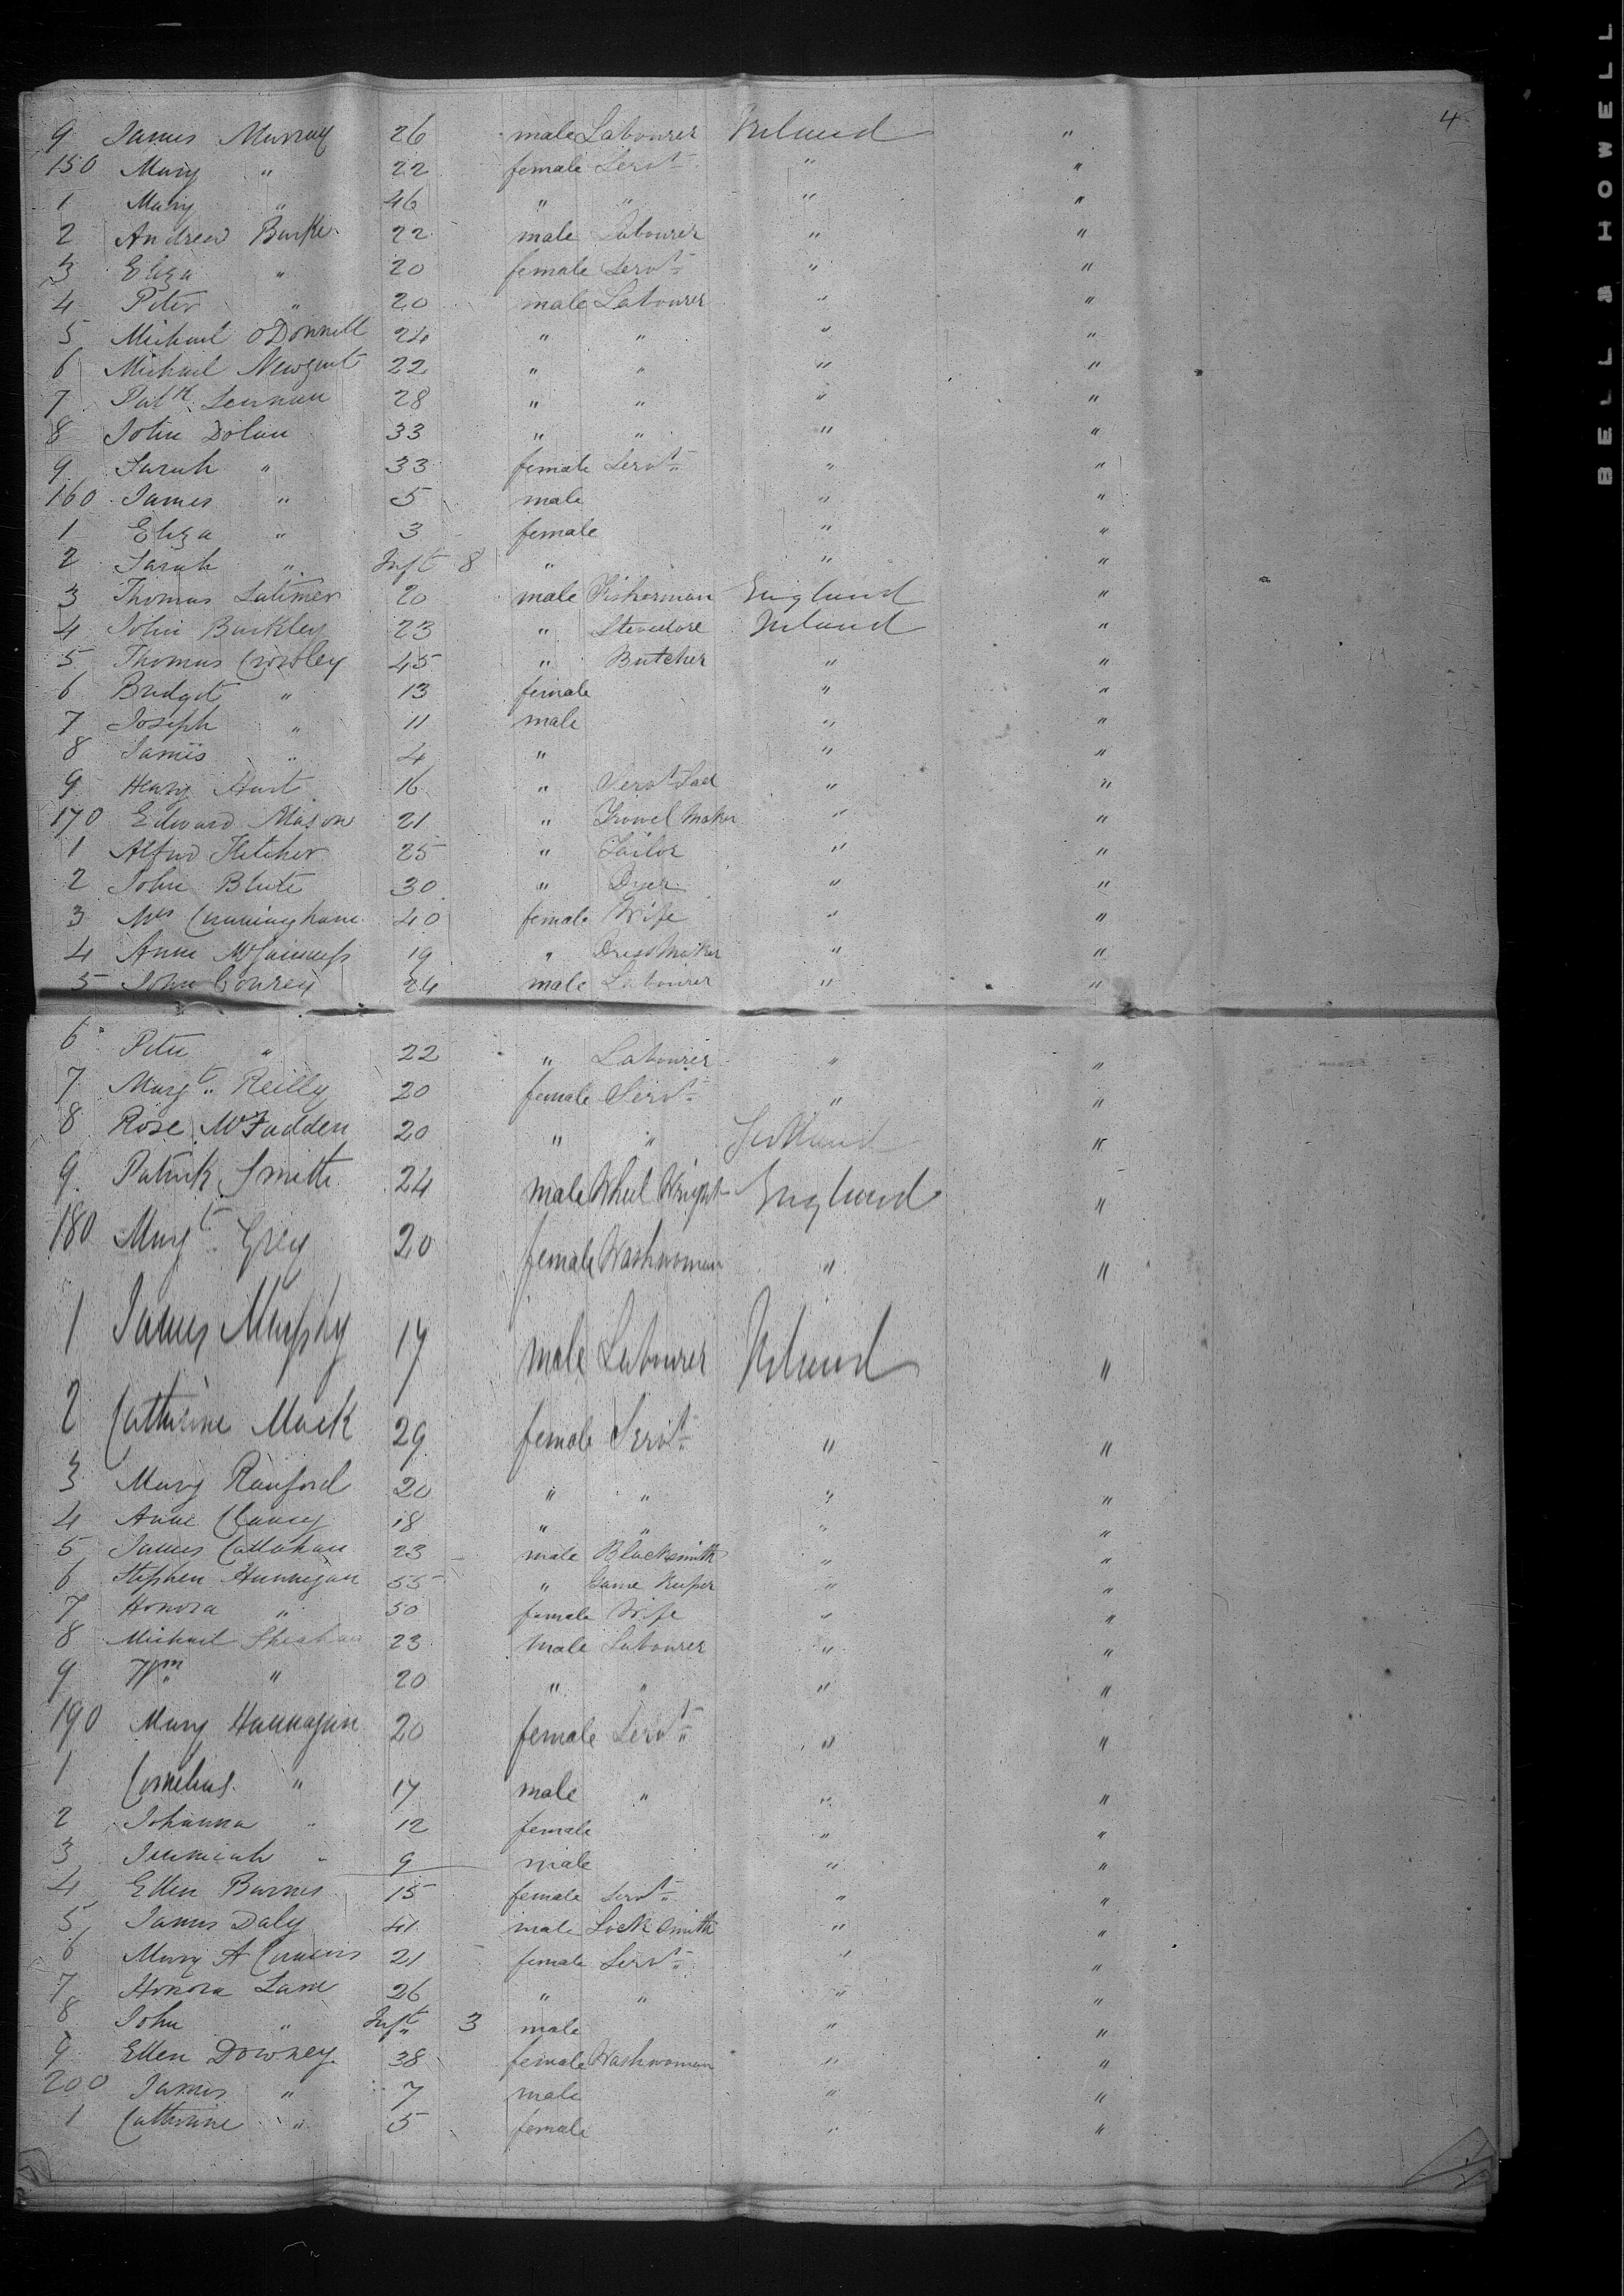 4
9 James Murray 26 male Labourer Ireland "
150 Mary " 22 female Servt " "
1 Mary " 46 " " " "
2 Andrew Burke 22 male Labourer " "
3 Eliza " 20 female Servt " "
4 Peter " 20 male Labourer " "
5 Michael O'Donnell 24 " " " "
6 Michael Newgent 22 " " " "
7 Patk Lennan 28 " " " "
8 John Dolan 33 " " " "
9 Sarah " 33 female Servt " "
160 James " 5 male " "
1 Eliza " 3 female " "
2 Sarah " Inft 8 " " "
3 Thomas Latimer 20 male Fisherman England "
4 John Buckley 23 " Stevedore Ireland "
5 Thomas Crowley 45 " Butcher " "
6 Bridget " 13 female " "
7 Joseph " 11 male " "
8 James " 4 " " "
9 Henry Hunt 16 " Servt Lad " "
170 Edward Mason 21 " Trowel Maker " "
1 Alfred Fletcher 25 " Tailor " "
2 John Blute 30 " Dyer " "
3 Mrs Cunningham 40 female Wife " "
4 Anne McGuiness 19 " Dress Maker " "
5 John Courey 24 male Labourer " "
6 Peter " 22 " Labourer " "
7 Margt Reilly 20 female Servt " "
8 Rose McFadden 20 " " Scotland "
9 Patrick Smith 24 male Wheel Wright England "
180 Margt Grey 20 female Washwoman " "
1 James Murphy 17 male Labourer Ireland "
2 Catherine Mack 29 female Servt " "
3 Mary Ranford 20 " " " "
4 Anne Clancy 18 " " " "
5 James Callahan 23 male Blacksmith " "
6 Stephen Hannigan 55 " Game Keeper " "
7 Honora " 50 female Wife " "
8 Michael Sheahan 23 male Labourer " "
9 Wm " 20 " " " "
190 Mary Hannagan 20 female Servt " "
1 Cornelius " 17 male " " "
2 Johanna " 12 female " "
3 Jeremiah " 9 male " "
4 Ellen Barnes 15 female Servt " "
5 James Daly 41 male Lock Smith " "
6 Mary A 21 female Servt " "
7 Honora Lane 26 " " " "
8 John " Inft 3 male " "
9 Ellen Downey 38 female Washwoman " "
200 James " 7 male " "
1 Catherine " 5 female " "
BELL & HOWELL